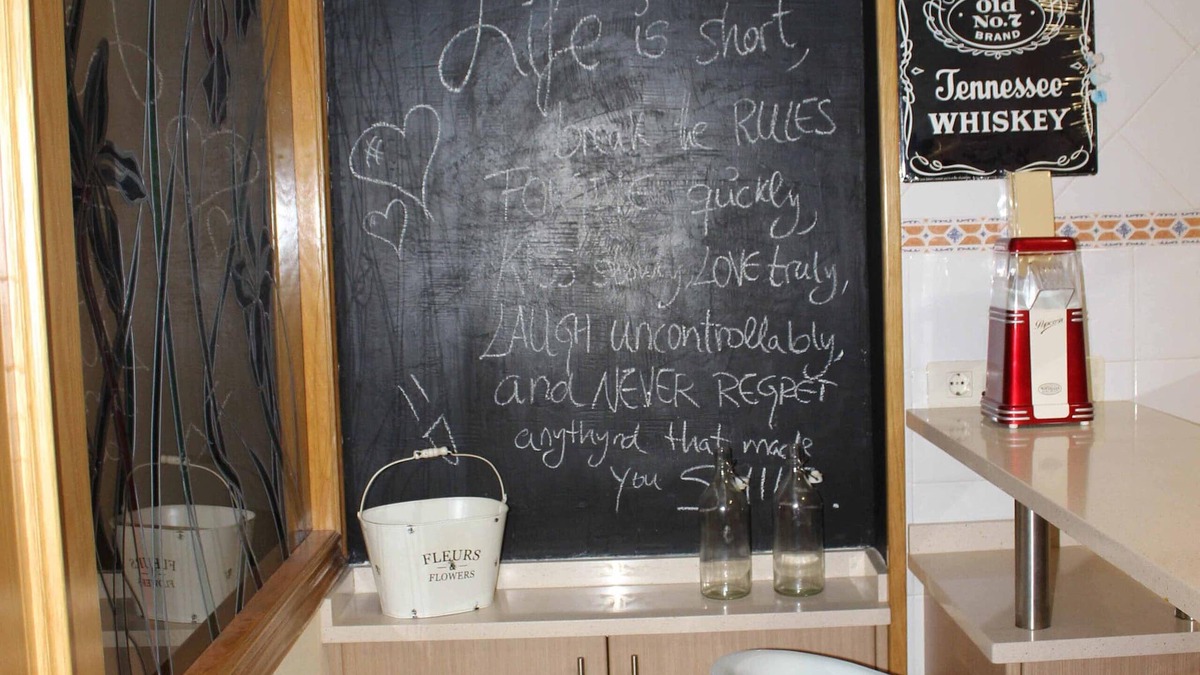 Life is short,
break the RULES
FORGIVE quickly,
KISS slowly, LOVE truly,
LAUGH uncontrollably,
and NEVER REGRET
anythynd that made
you
#
FLEURS
&
FLOWERS
Old
No.7
BRAND
Tennessee
WHISKEY
Popcorn